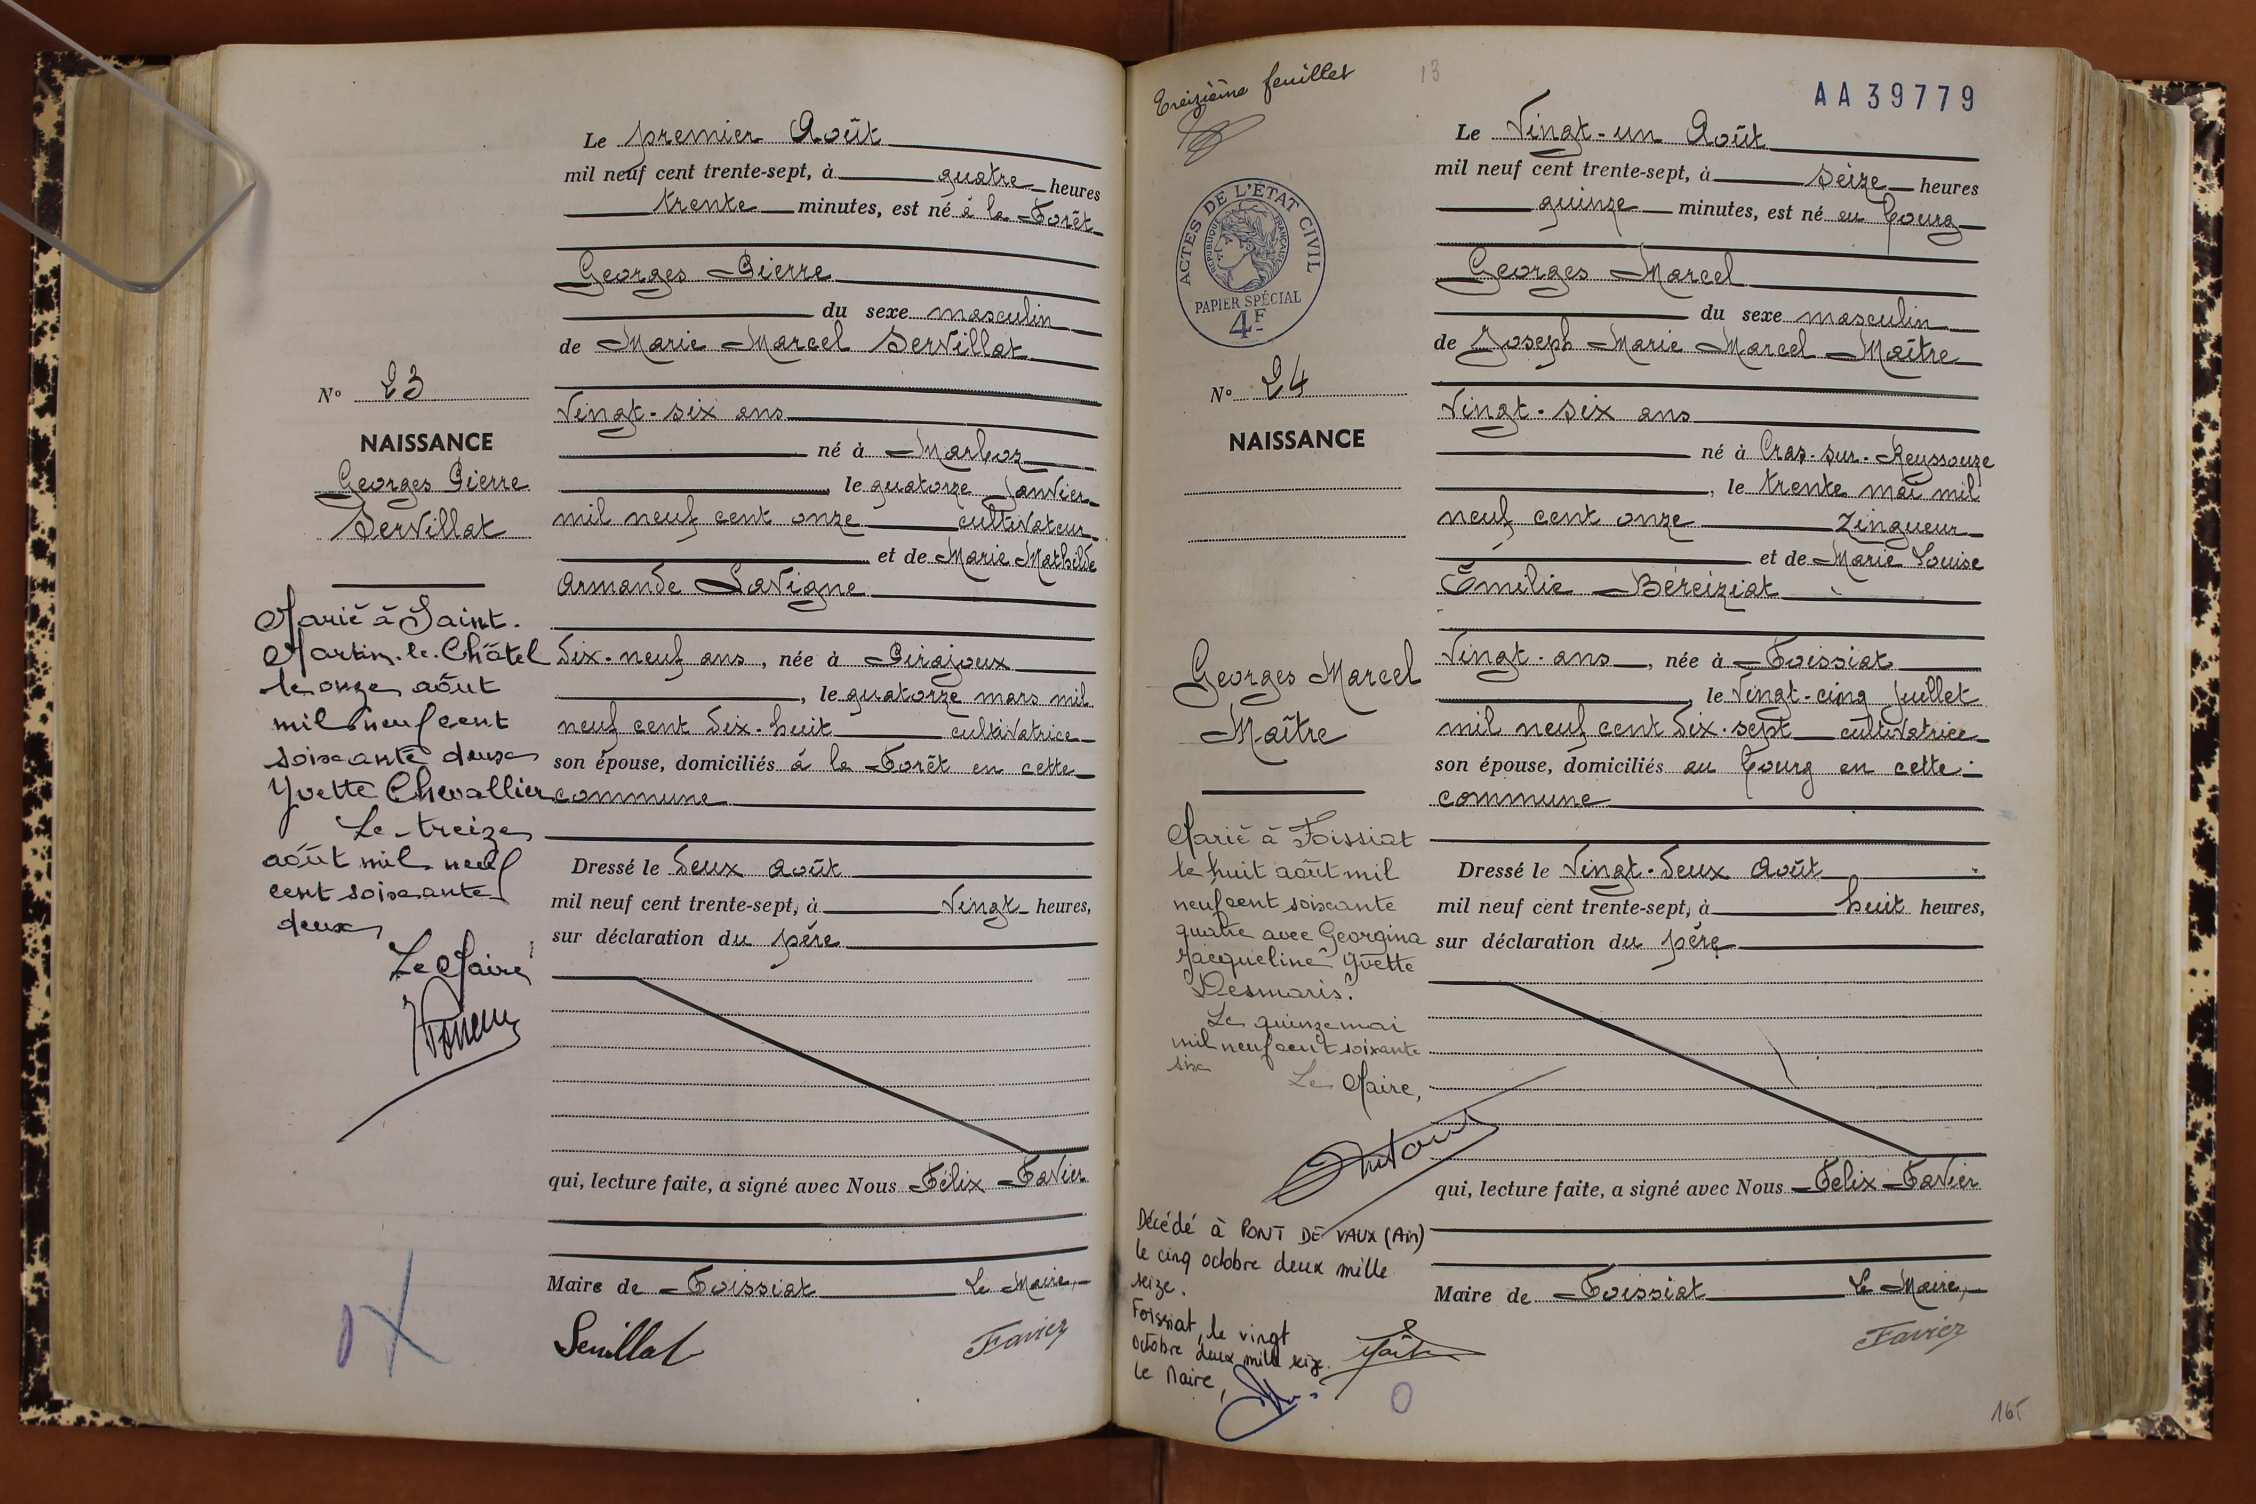 Le premier Août
mil neuf cent trente-sept, à quatre heures
trente minutes, est né à la Forêt
Georges Pierre
du sexe masculin
de Marie Marcel Servillat
N° 23
Vingt-six ans
né à Marboz
NAISSANCE
Georges Pierre
Servillat
, le quatorze Janvier
mil neuf cent onze cultivateur
et de Marie Mathilde
Armande Lavigne
dix-neuf ans, née à Pirajoux
, le quatorze mars mil
neuf cent dix-huit cultivatrice
son épouse, domiciliés à la Forêt en cette
commune
Marié à Saint-
Martin-le-Châtel
le onze août
mil neuf cent
soixante deux
Yvette Chevallier
Le treize
août mil neuf
cent soixante
deux
Le Maire
Dressé le deux août
mil neuf cent trente-sept, à Vingt heures,
sur déclaration du père
qui, lecture faite, a signé avec Nous Félix Favier
Maire de Foissiat Le Maire,
Servillat Favier
Treizième feuillet
13
AA 39779
ACTES DE L'ÉTAT CIVIL
RÉPUBLIQUE FRANÇAISE
PAPIER SPÉCIAL
4F
Le Vingt-un Août
mil neuf cent trente-sept, à seize heures
quinze minutes, est né au bourg
Georges Marcel
du sexe masculin
de Joseph Marie Marcel Maître
N° 24
Vingt-six ans
né à Cras-sur-Reyssouze
NAISSANCE
, le trente mai mil
neuf cent onze zingueur
et de Marie Louise
Emélie Béreiziat
Vingt-ans, née à Foissiat
, le Vingt-cinq Juillet
mil neuf cent dix-sept cultivatrice
son épouse, domiciliés au bourg en cette
commune
Georges Marcel
Maître
Marié à Foissiat
le huit août mil
neuf cent soixante
quatre avec Georgina
Jacqueline Yvette
Desmaris.
Le quinze mai
mil neuf cent soixante
six
Le Maire,
Dressé le Vingt-deux Août
mil neuf cent trente-sept, à huit heures,
sur déclaration du père
qui, lecture faite, a signé avec Nous Félix Favier
Maire de Foissiat Le Maire,
Maître Favier
Décédé à PONT DE VAUX (Ain)
le cinq octobre deux mille
seize.
Foissiat, le vingt
octobre deux mille seize.
Le Maire,
165